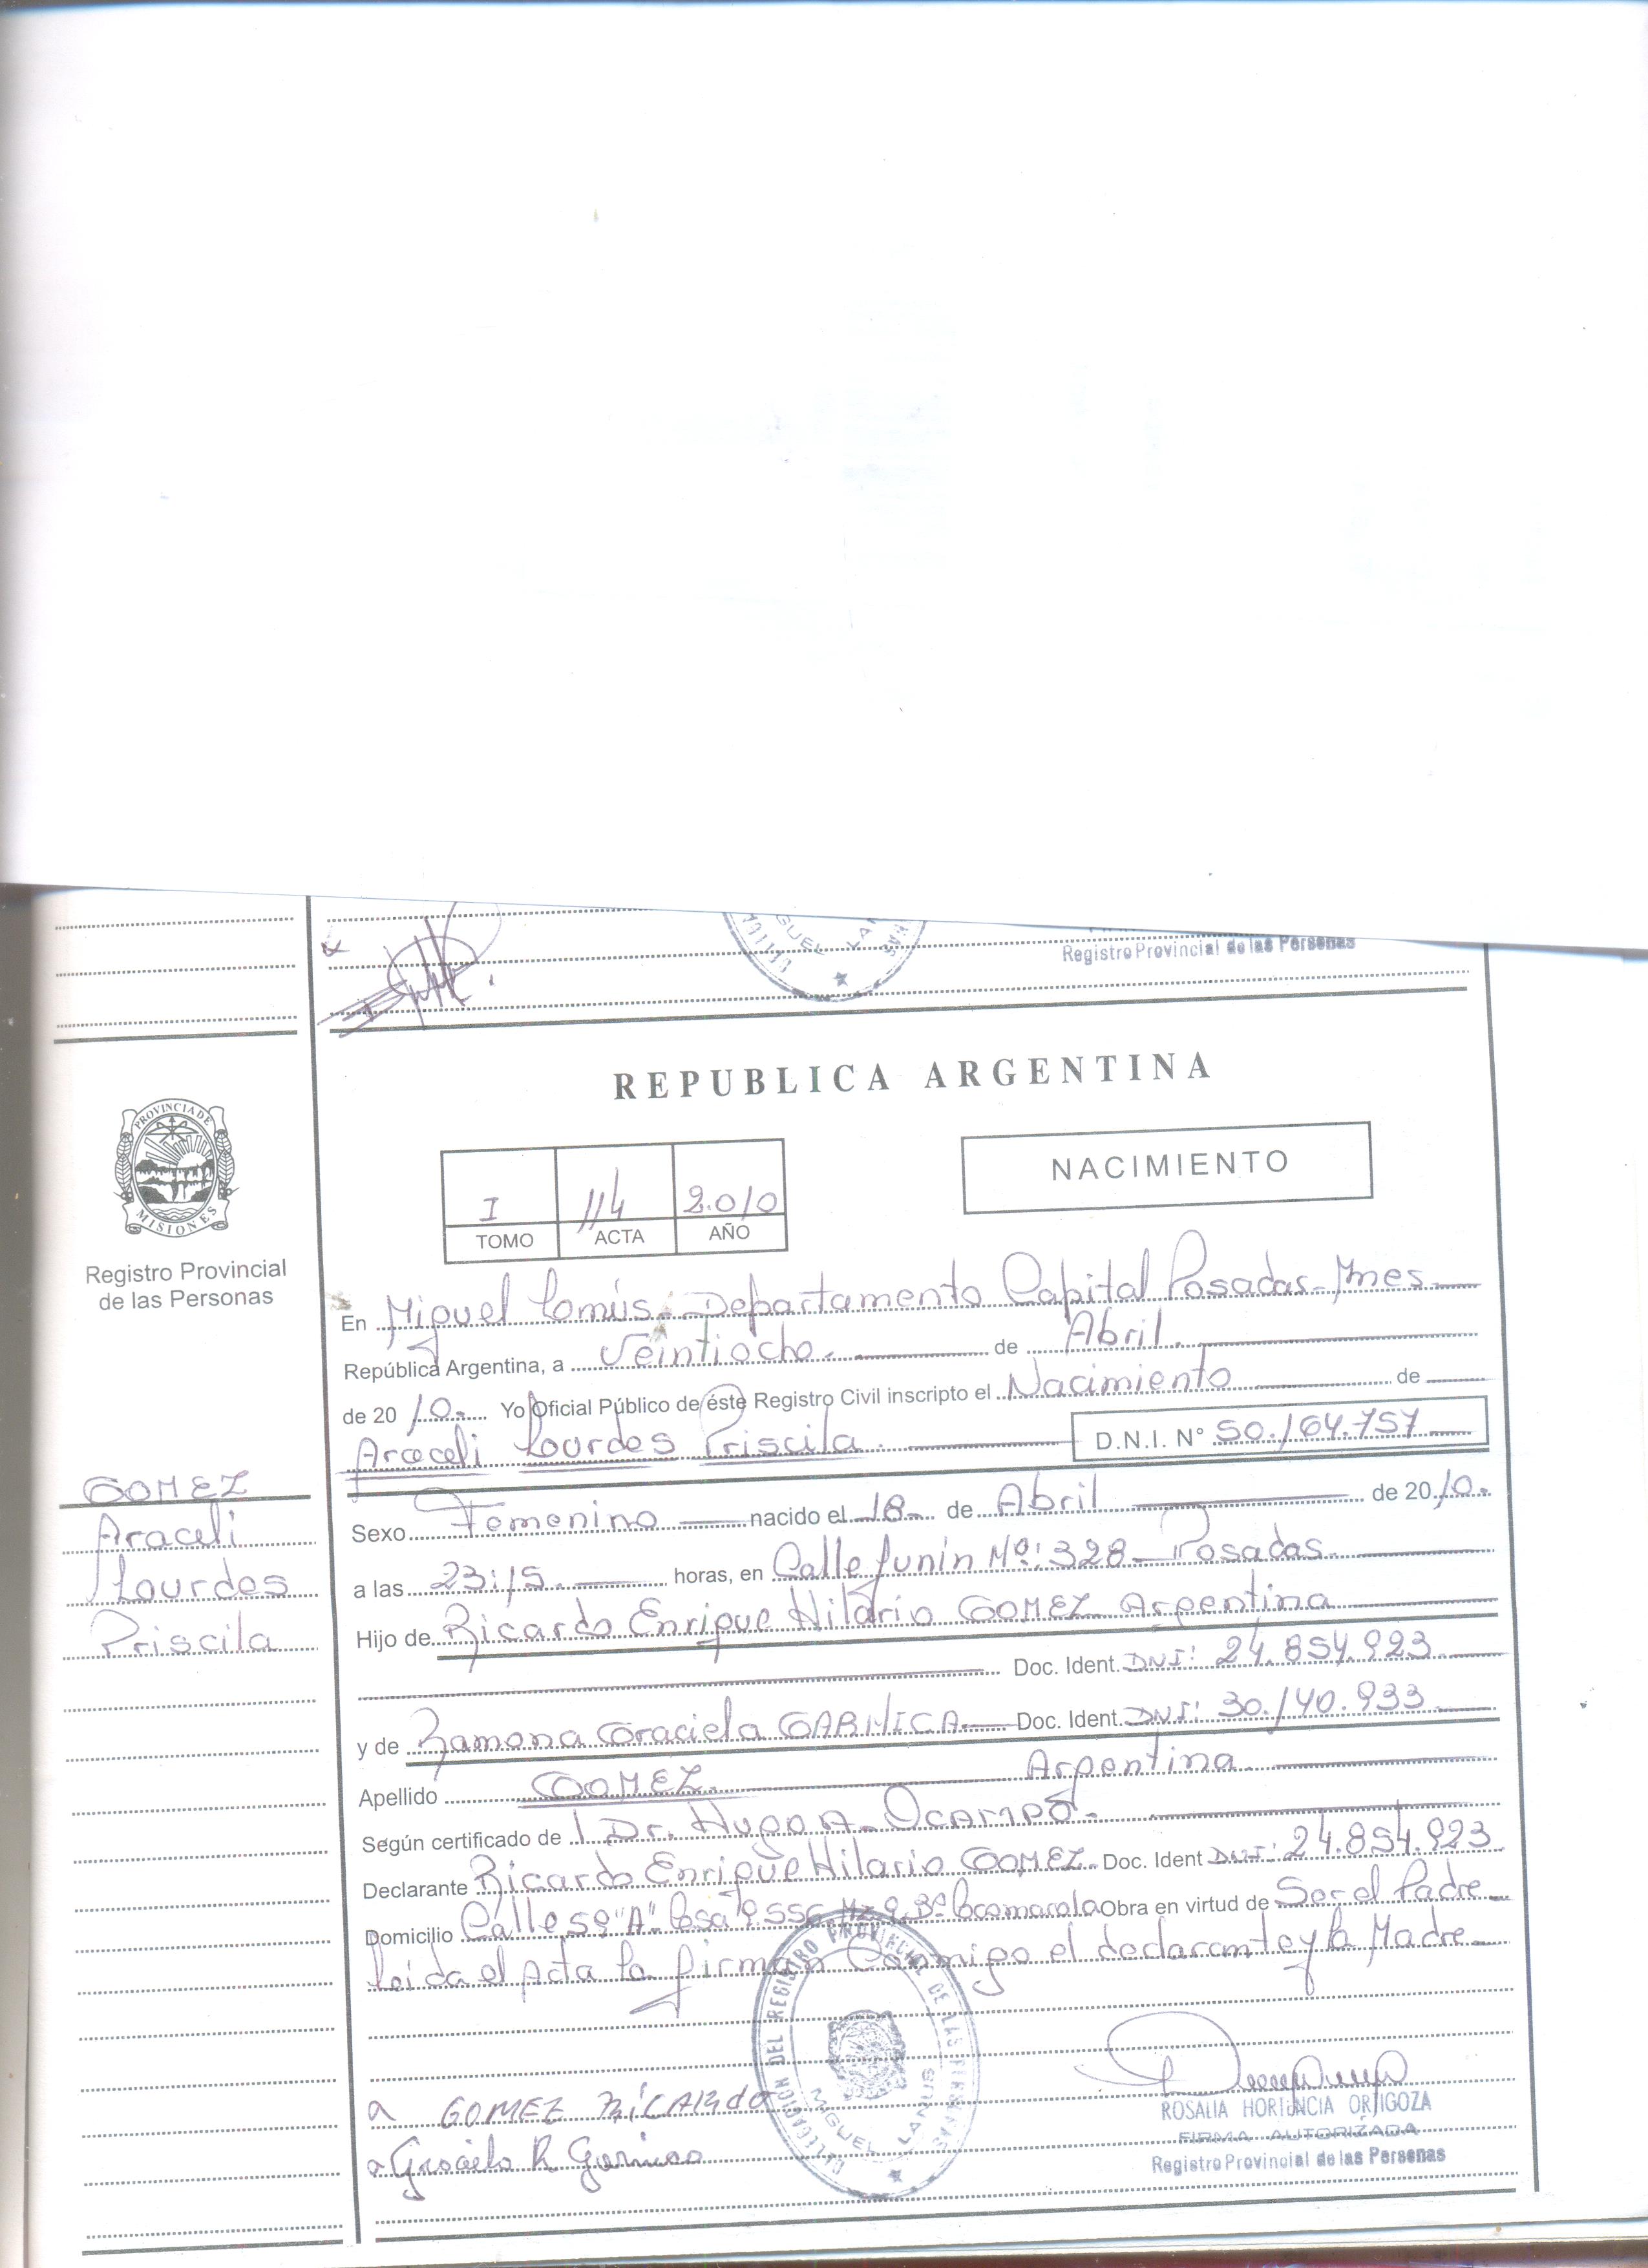 GUEL LA
Registro Provincial de las Personas
REPUBLICA ARGENTINA
PROVINCIA DE
MISIONES
Registro Provincial
de las Personas
I 114 2.010
TOMO ACTA AÑO
NACIMIENTO
En Miguel Lanús.- Departamento Capital Posadas-Mnes
República Argentina, a Veintiocho. de Abril.
de 20 10. Yo Oficial Público de éste Registro Civil inscripto el Nacimiento de
Araceli Lourdes Priscila. D.N.I. N° 50.164.757
GOMEZ
Araceli
Lourdes
Priscila
Sexo Femenino nacido el 18 de Abril de 20 10.
a las 23:15. horas, en Calle Junín Nº: 328 Posadas.
Hijo de Ricardo Enrique Hilario GOMEZ Argentina
Doc. Ident. DNI: 24.854.923
y de Ramona Graciela GARNICA Doc. Ident. DNI: 30.140.933
Apellido GOMEZ. Argentina
Según certificado de Dr. Hugo A. OCAMPO.
Declarante Ricardo Enrique Hilario GOMEZ. Doc. Ident DNI: 24.854.923
Domicilio Calle 59 "A" Casa Obra en virtud de Ser el Padre
leida el Acta la firman Conmigo el declarante y la Madre
DELEGACION DEL REGISTRO PROVINCIAL DE LAS PERSONAS
MIGUEL LANUS
a GOMEZ RICARDO
a Graciela R Garnica
ROSALIA HORTENCIA ORTIGOZA
FIRMA AUTORIZADA
Registro Provincial de las Personas